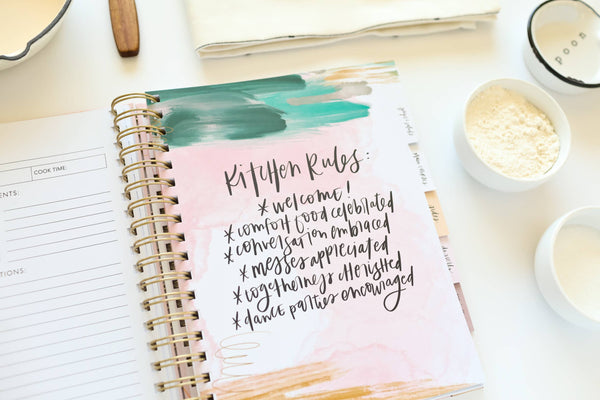 COOK TIME:
ENTS:
TIONS:
Kitchen Rules:
* welcome!
* comfort food celebrated
* conversation embraced
* messes appreciated
* togetherness cherished
* dance parties encouraged
poon